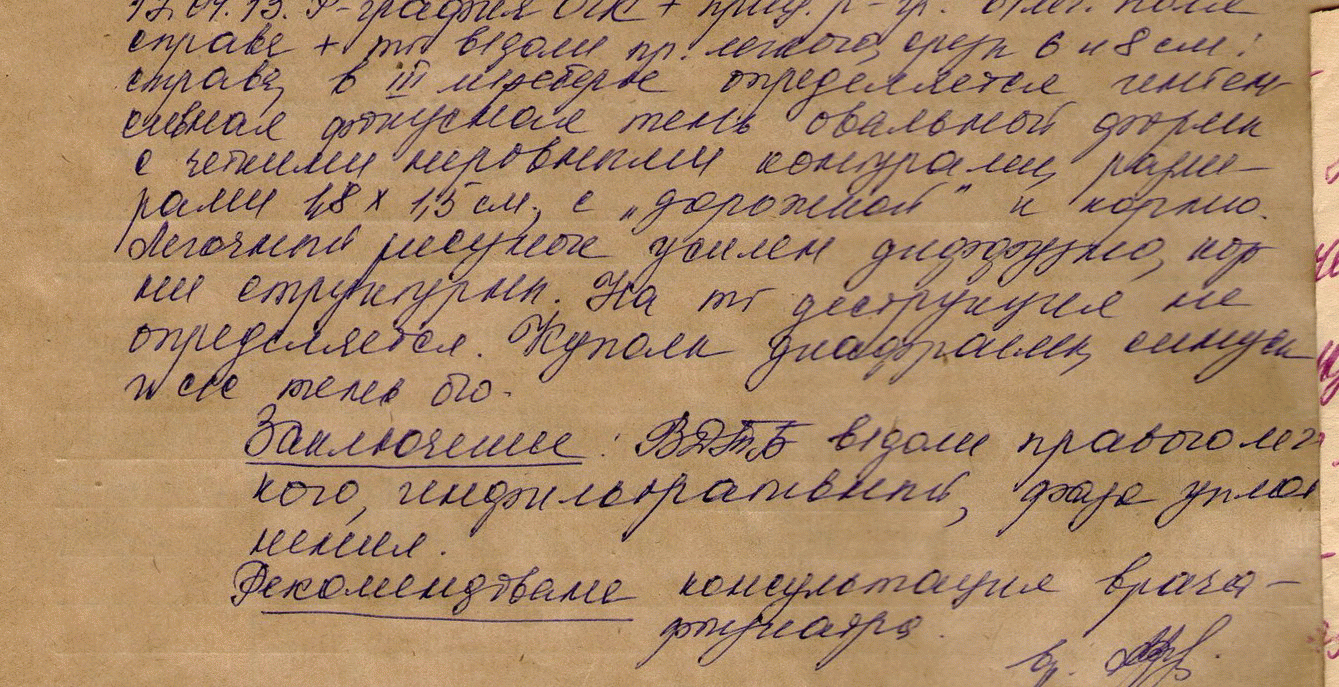 17.04.13. Р-графия ОГК + приц. р-гр. легк. поля
справа + тг в/доли пр. легкого, срезы 6 и 8 см:
справа, в III м/реберье определяется интен-
сивная фокусная тень овальной формы
с четкими неровными контурами, разме-
рами 1,8 х 1,5 см, с „дорожкой" к корню.
Легочный рисунок усилен диффузно, кор-
ни структурны. На тг деструкция не
определяется. Купола диафрагмы, синусы
и сос тень б/о.
Заключение: ВДТБ в/доли правого лег-
кого, инфильтративный, фаза уплот-
нения.
Рекомендована консультация врача-
фтизиатра.
вр.